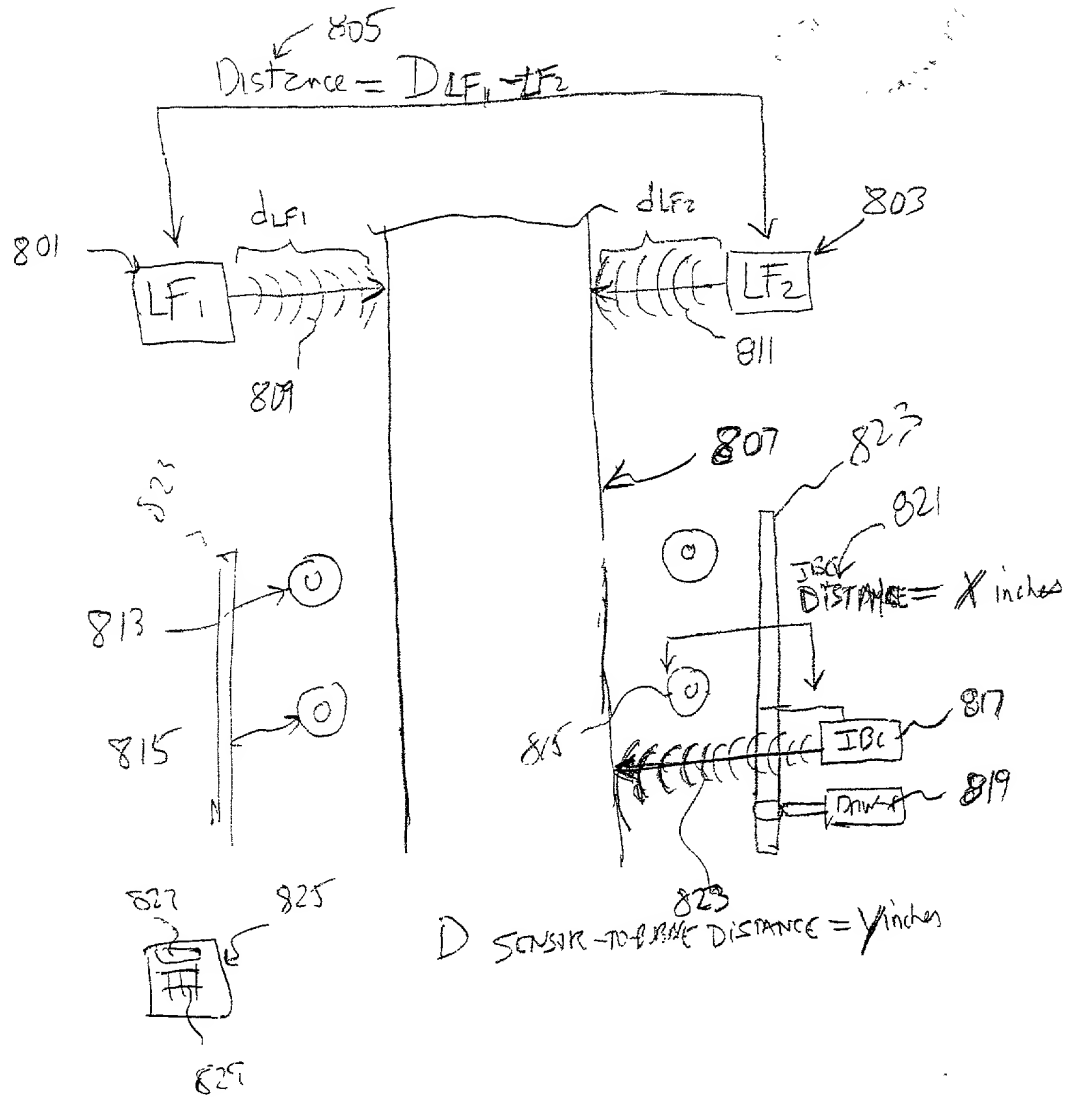 805
Distance = DLF1-LF2
dLF1
dLF2
803
801
LF1
LF2
809
811
807
823
821
IBC
DISTANCE = X inches
813
815
815
817
IBC
819
823
827
825
D SENSOR-TO-BALE DISTANCE = Y inches
829